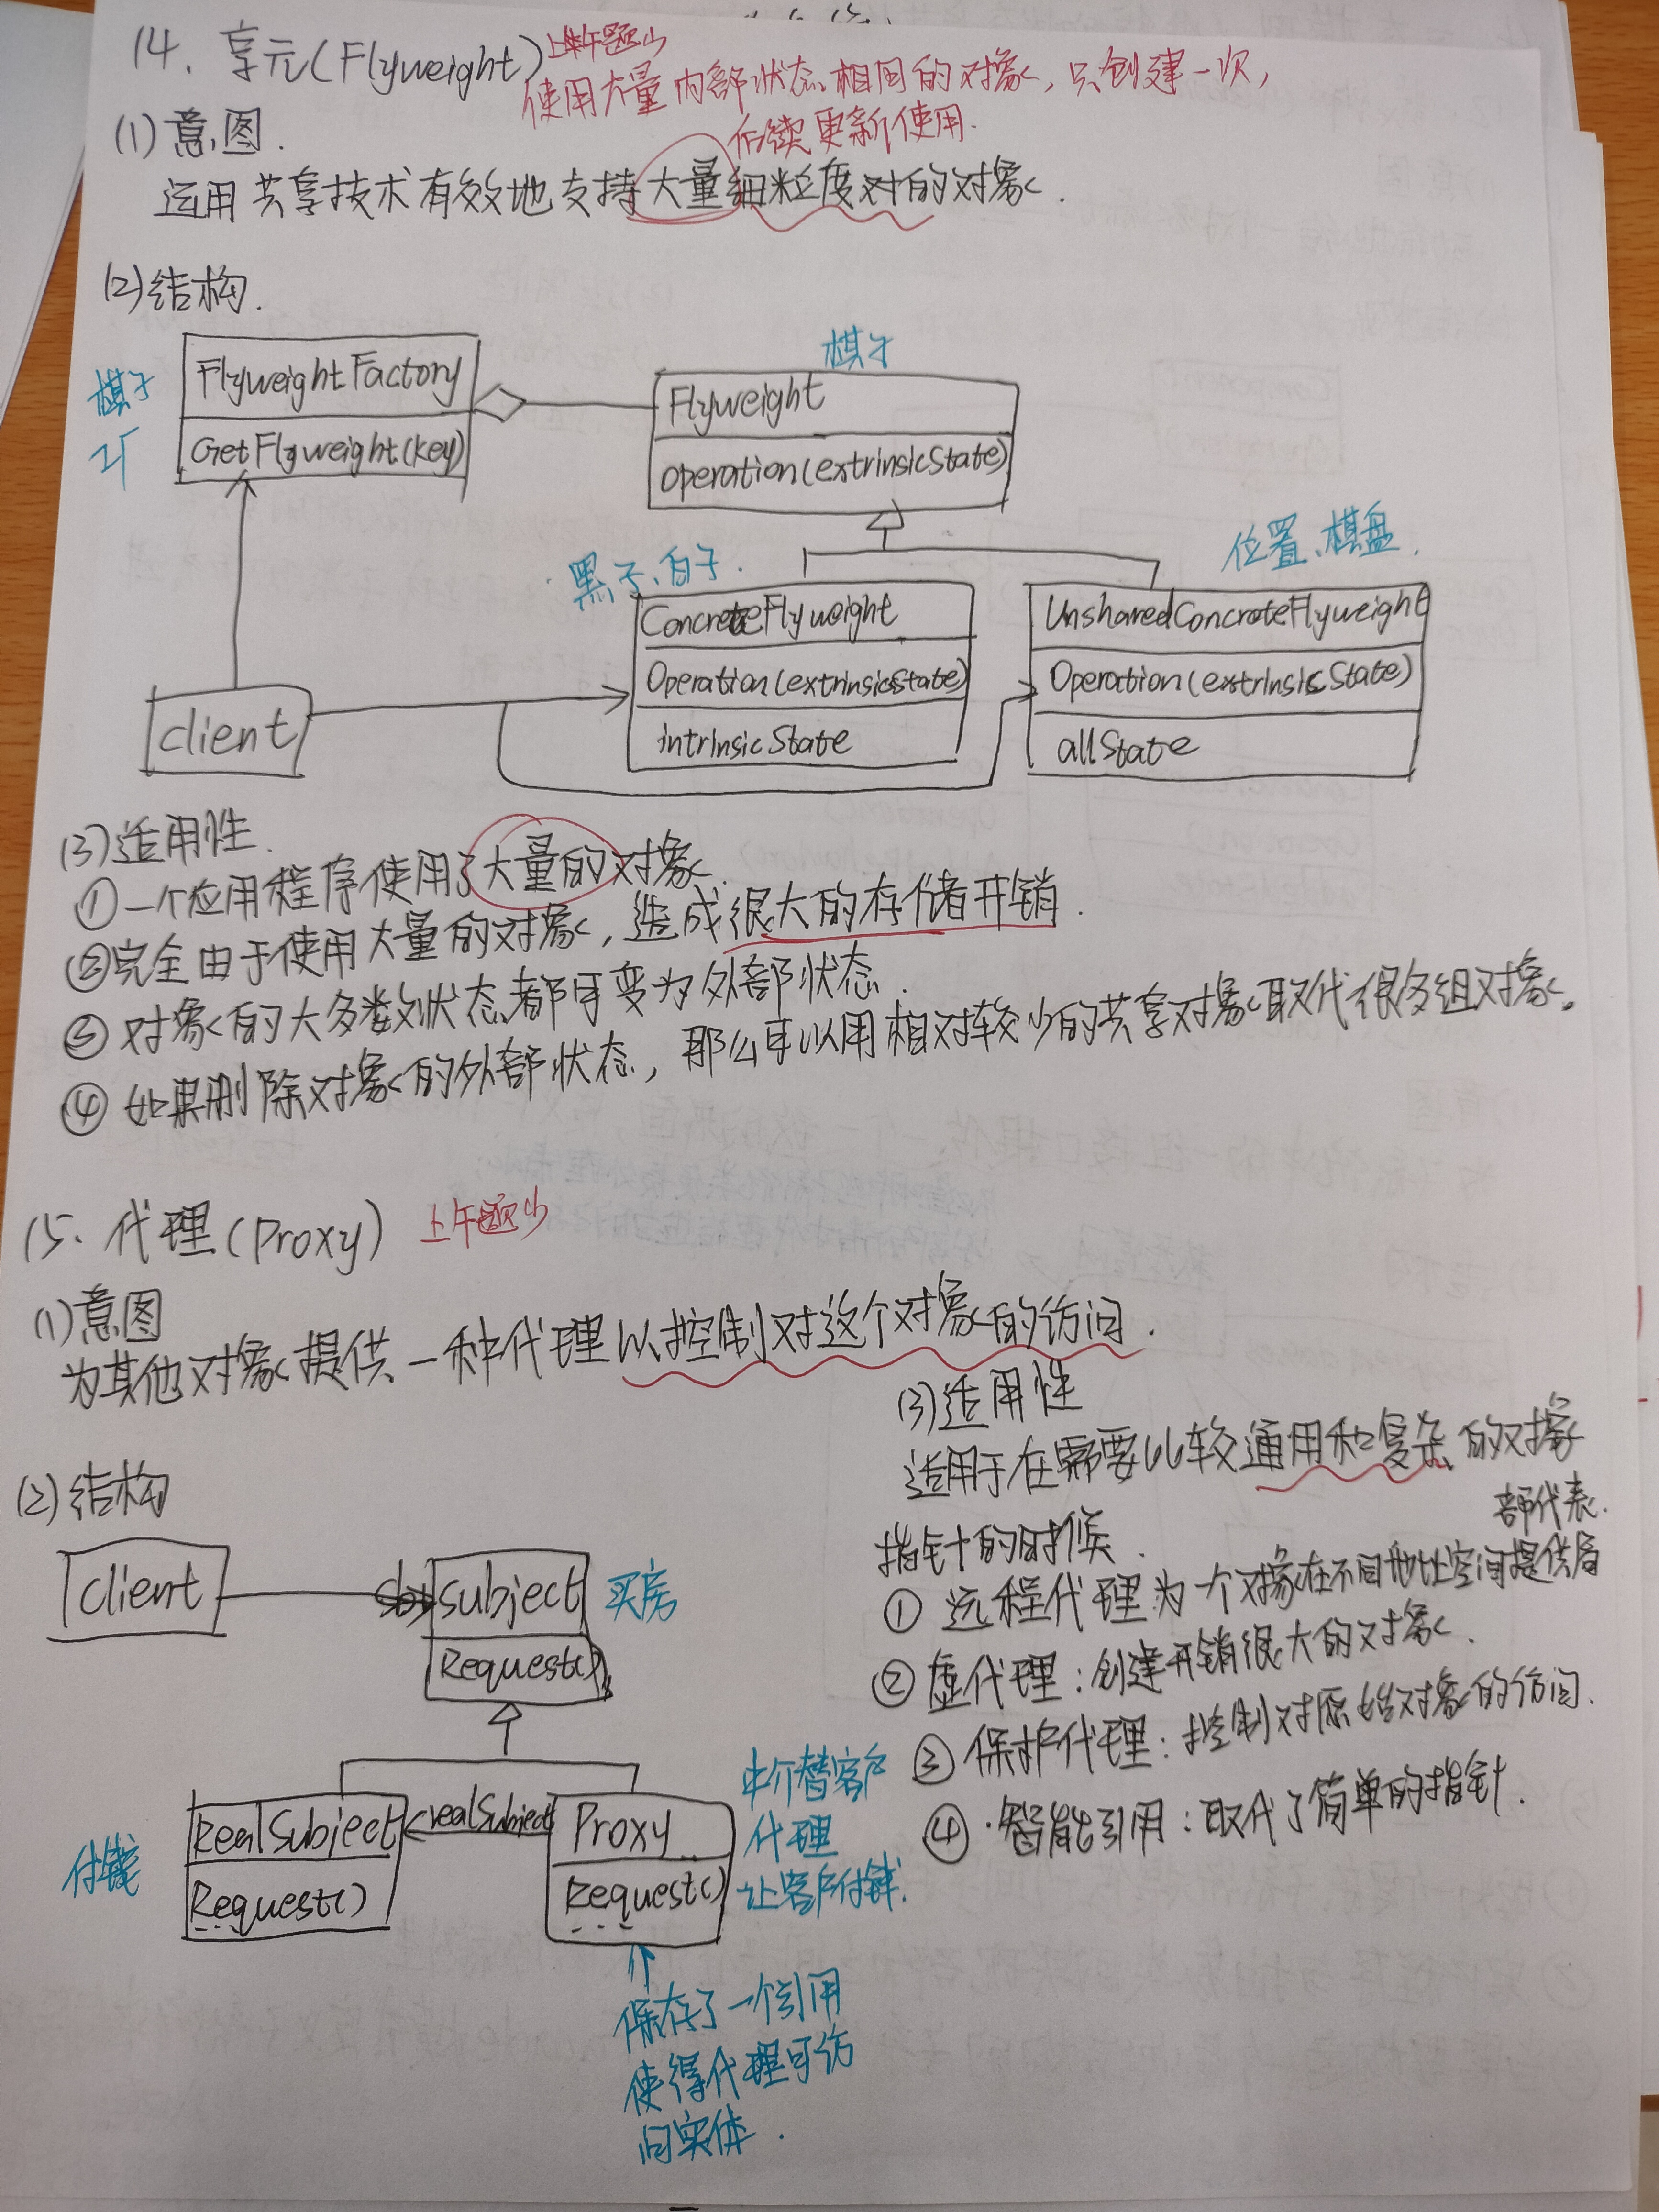 14、享元(Flyweight) 上午题少
使用大量内部状态相同的对象，只创建一次，
后续更新使用.
(1)意图.
运用共享技术有效地支持大量细粒度对的对象.
(2)结构.
棋子
厂
FlyweightFactory
GetFlyweight(key)
棋子
Flyweight
operation(extrinsicState)
黑子、白子.
位置、棋盘.
ConcreteFlyweight
Operation(extrinsicState)
intrinsicState
UnsharedConcreteFlyweight
Operation(extrinsicState)
allState
client
(3)适用性.
①一个应用程序使用了大量的对象.
②完全由于使用大量的对象，造成很大的存储开销.
③对象的大多数状态都可变为外部状态.
④如果删除对象的外部状态，那么可以用相对较少的共享对象取代很多组对象。
15、代理(Proxy) 上午题少
(1)意图
为其他对象提供一种代理以控制对这个对象的访问.
(3)适用性
适用于在需要比较通用和复杂的对象
指针的时候.
①远程代理为一个对象在不同地址空间提供局
部代表.
②虚代理：创建开销很大的对象.
③保护代理：控制对原始对象的访问.
④·智能引用：取代了简单的指针.
(2)结构
client
subject
Request()
买房
付钱
RealSubject
Request()
realSubject
Proxy
Request()
中介替客户
代理
让客户付钱.
保存了一个引用
使得代理可访
问实体.